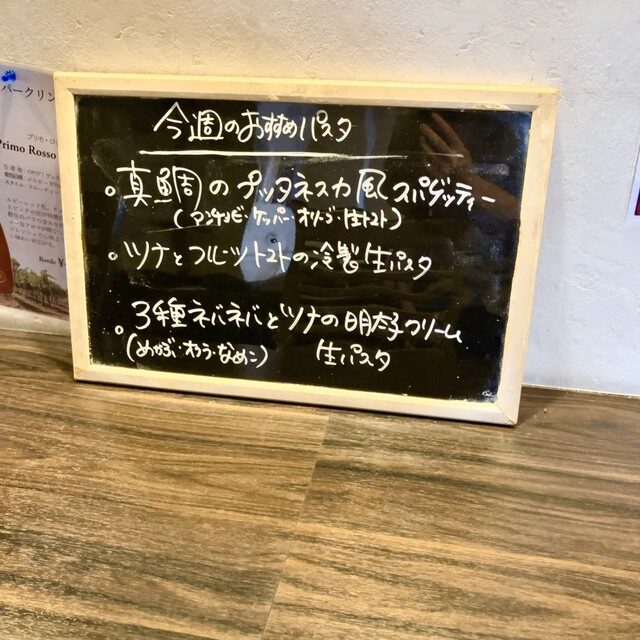 今週のおすすめパスタ
真鯛のプッタネスカ風スパゲッティー
(アンチョビ・ケッパー・オリーブ・生トマト)
ツナとフルーツトマトの冷製生パスタ
3種ネバネバとツナの明太子クリーム
(めかぶ・オクラ・なめこ) 生パスタ
パークリン
プリモ・ロ
Primo Rosso
Bottle ¥